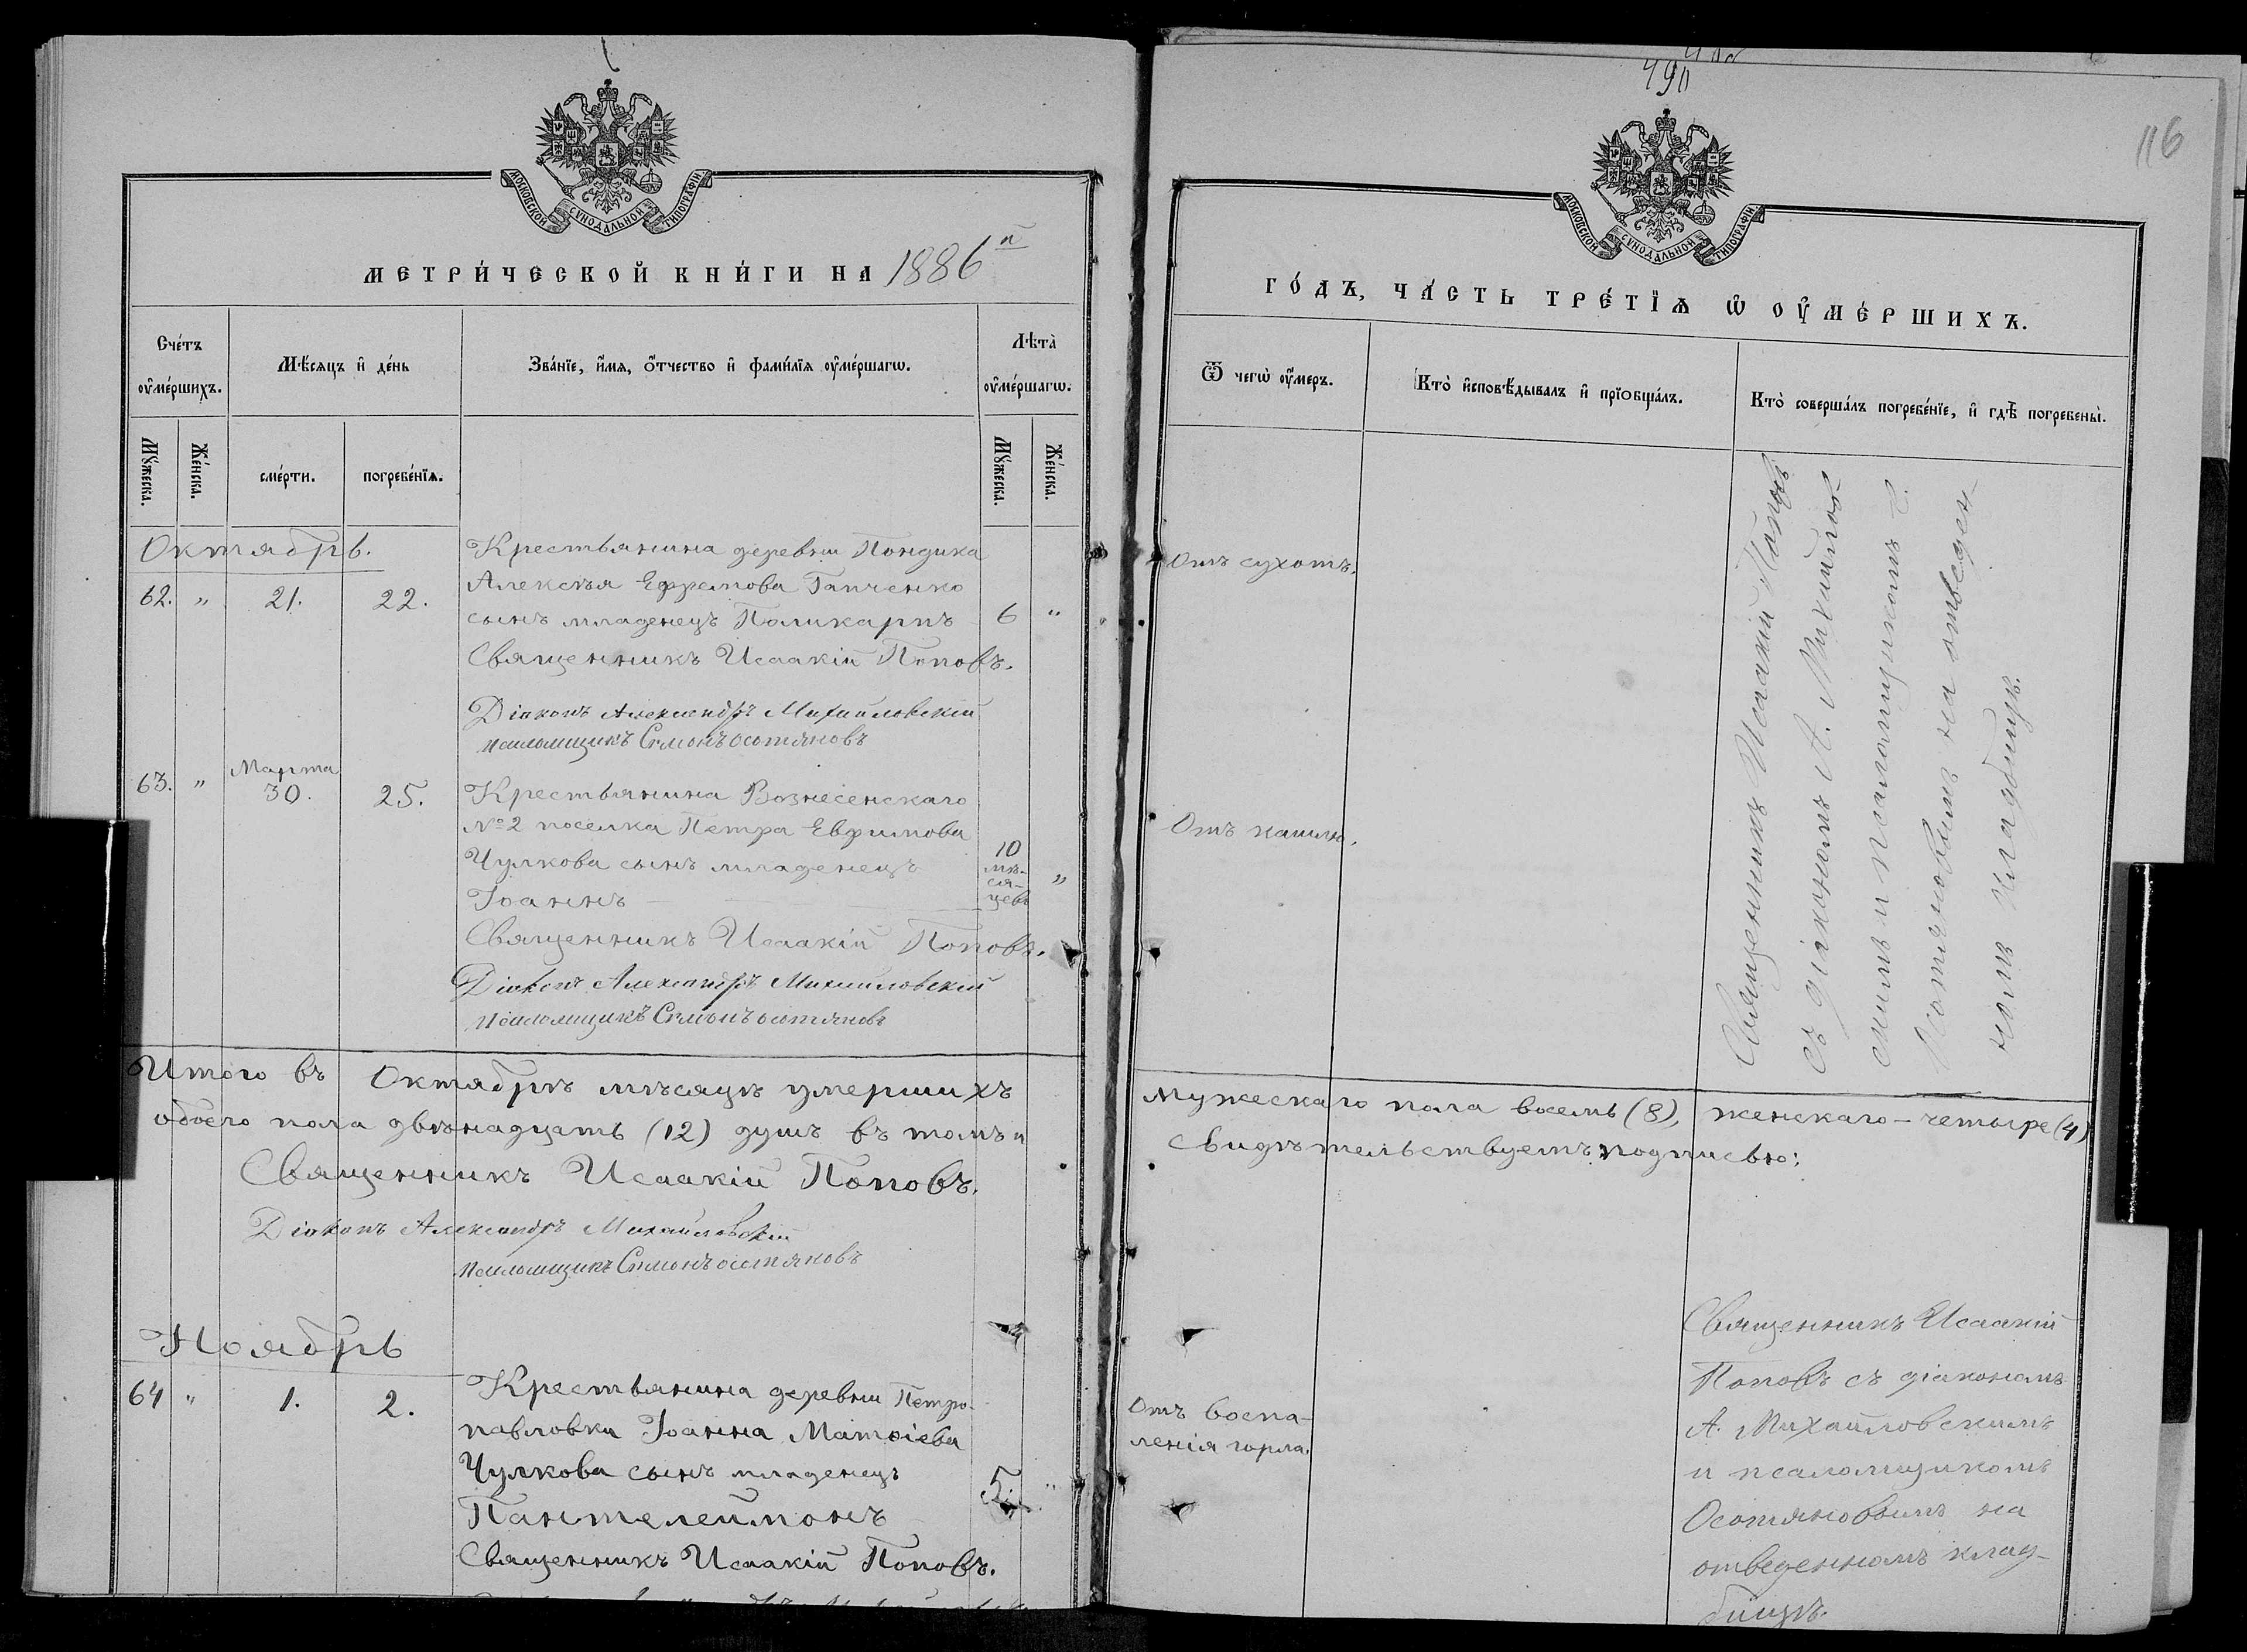 МОСКОВСКОЙ СѴНОДАЛЬНОЙ ТИПОГРАФІИ
МЕТРИ́ЧЕСКОЙ КНИ́ГИ НА 1886й
Сче́тъ оу҆ме́ршихъ.
Мѣ́сяцъ и҆ де́нь
Зва́нїе, и҆́мя, ѻ҆́тчество и҆ фами́лїя оу҆ме́ршагѡ.
Лѣта̀ оу҆ме́ршагѡ.
Мꙋ́жеска.
Же́нска.
сме́рти.
погребе́нїя.
Мꙋ́жеска.
Же́нска.
Октябрь.
62. " 21. 22.
Крестьянина деревни Пондика
Алексѣя Ефремова Гапченко
сынъ младенецъ Поликарпъ 6 "
Священникъ Исаакій Поповъ.
Діаконъ Александръ Михайловскій
псаломщикъ Симонъ Осотяновъ
63. " Марта 30. 25.
Крестьянина Вознесенскаго
№2 поселка Петра Евфимова
Чулкова сынъ младенецъ
Іоаннъ
10 мѣ-
ся-
цевъ "
Священникъ Исаакій Поповъ.
Діаконъ Александръ Михайловскій
псаломщикъ Симонъ Осотяновъ
Итого въ Октябрѣ мѣсяцѣ умершихъ
обоего пола двѣнадцать (12) душъ въ томъ и
Священникъ Исаакій Поповъ.
Діаконъ Александръ Михайловскій
псаломщикъ Симонъ Осотяновъ
Ноябрь
64 " 1. 2.
Крестьянина деревни Петро-
павловки Іоанна Матѳіева
Чулкова сынъ младенецъ
Пантелеймонъ
5. "
Священникъ Исаакій Поповъ.
490
116
МОСКОВСКОЙ СѴНОДАЛЬНОЙ ТИПОГРАФІИ
ГО́ДЪ, ЧА́СТЬ ТРЕ́ТЇѦ Ѡ҆ ОУ҆МЕ́РШИХЪ.
Ѿ чегѡ̀ оу҆́меръ.
Кто̀ и҆сповѣ́дывалъ и҆ прїобща́лъ.
Кто̀ соверша́лъ погребе́нїе, и҆ гдѣ̀ погребены̀.
Отъ сухотъ.
Отъ кашлю.
Священникъ Исаакій Поповъ
съ діакономъ А. Михайлов-
скимъ и псаломщикомъ С.
Осотяновымъ на отведен-
номъ кладбищѣ.
Мужескаго пола восемь (8), женскаго - четыре (4)
Свидѣтельствуетъ подписью:
Отъ воспа-
ленія горла.
Священникъ Исаакій
Поповъ съ діакономъ
А. Михайловскимъ
и псаломщикомъ
Осотяновымъ на
отведенномъ клад-
бищѣ.